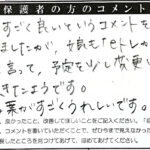 保護者の方のコメント
すごく良いというコメントを
ましたが、娘も「eトレか
言って、予定を少し変更し
きたようです。
葉がすごくうれしいです。
良かったこと、改善してほしいことをご記入ください。
コメントを書いていただくことで、ぜひ今まで見えなかった
したところを見つけてあげて、ほめてあげてください。